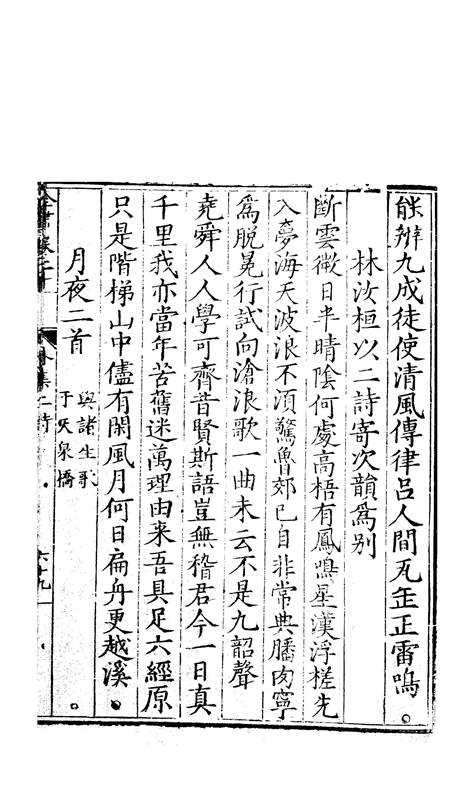 能辨九成徒使清風傳律呂人間瓦缶正雷鳴
林汝桓以二詩寄次韻爲別
斷雲微日半晴陰何處高梧有鳳鳴星漢浮槎先
入夢海天波浪不湏驚魯郊已自非常典膰肉寧
爲脫冕行試向滄浪歌一曲未云不是九韶聲
堯舜人人學可齊昔賢斯語豈無稽君今一日眞
千里我亦當年苦舊迷萬理由來吾具足六經原
只是階梯山中儘有閑風月何日扁舟更越溪
月夜二首
與諸生歌
于天泉橋